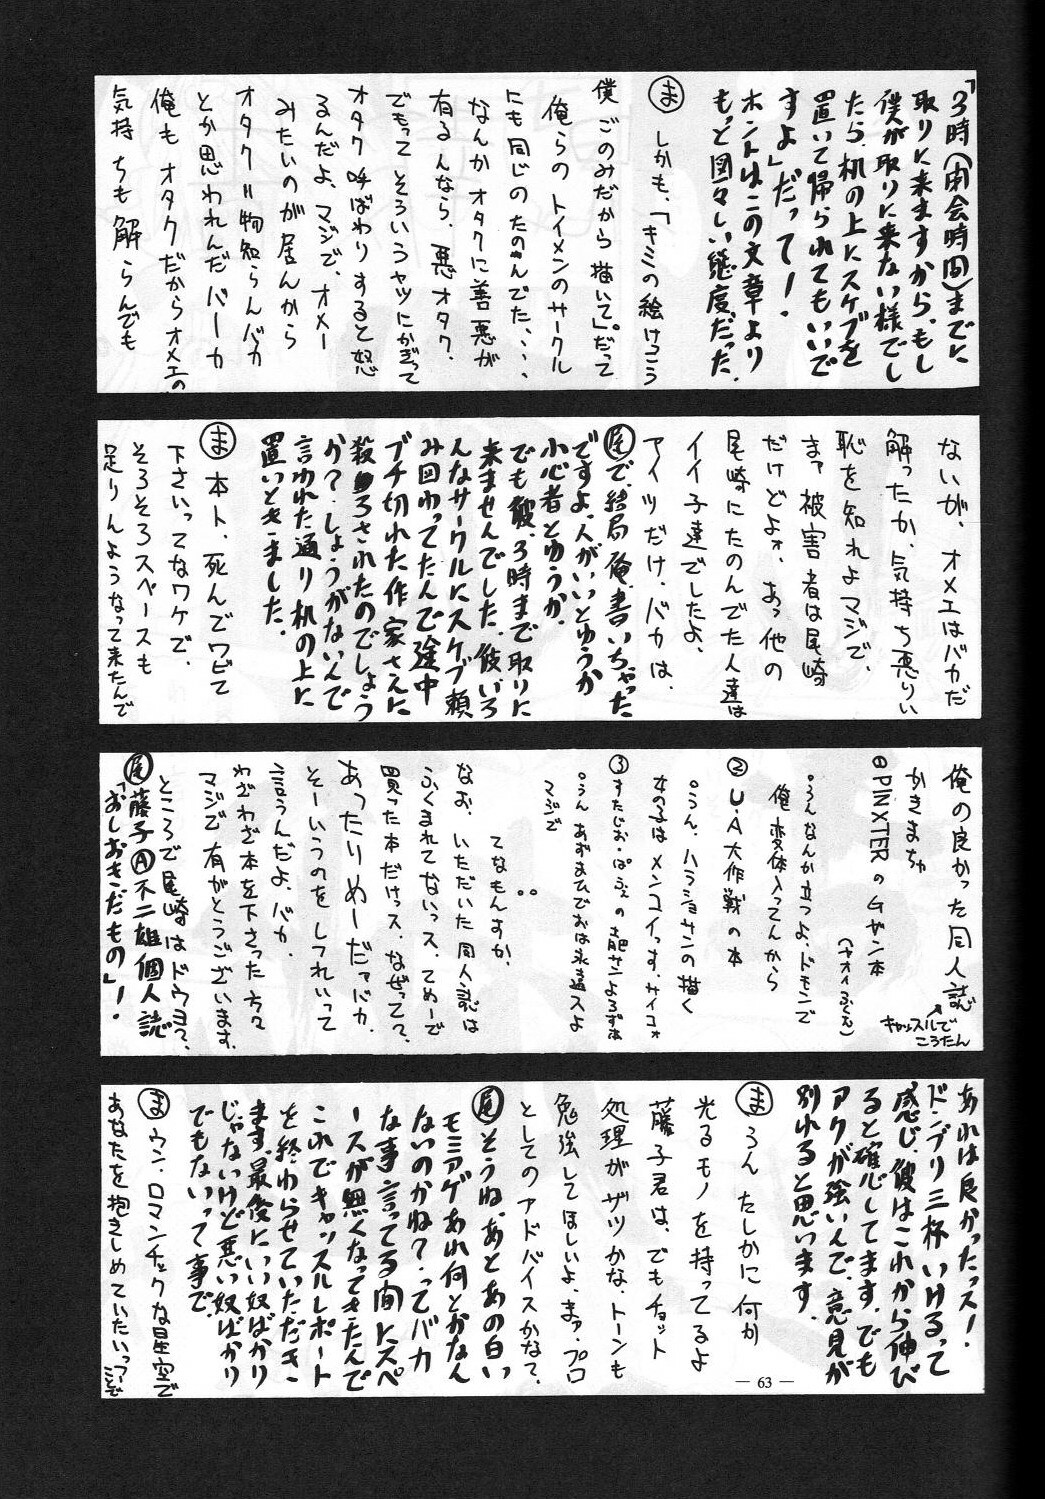 「3時(閉会時間)までに
取りに来ますから、もし
僕が取りに来ない様でし
たら、机の上にスケブを
置いて帰られてもいいで
すよ」だって!
ホントはこの文章より
もっと図々しい態度だった。
ま しかも、「キミの絵けっこう
僕ごのみだから描いて」。だって
俺らのトイメンのサークル
にも同じのたのんでた、、、、
なんかオタクに善悪が
有るんなら、悪オタク、
でもってそういうヤツにかぎって
オタク呼ばわりすると怒
るんだよ、マジで、オメー
みたいのが居んから
オタク=物知らんバカ
とか思われんだバーカ
俺もオタクだからオメエの
気持ちも解らんでも
ないが、オメエはバカだ
解ったか、気持ち悪りい
恥を知れよマジで、
まァ被害者は尾崎
だけどよォ、あっ他の
尾崎にたのんでた人達は
イイ子達でしたよ、
アイツだけ、バカは、
尾 で、結局俺、書いちゃった
ですよ、人がいいとゆうか
小心者とゆうか、
でも彼、3時まで取りに
来ませんでした、彼いろ
んなサークルにスケブ頼
み回わってたんで途中
ブチ切れた作家さんに
殺ろされたのでしょう
か?しょうがないんで
言われた通り机の上に
置いときました。
ま 本ト、死んでワビて
下さいってなワケで、
そろそろスペースも
足りんようなって来たんで
俺の良かった同人誌
キャッスルで
ころたん
かきまちゅ
①PINXTERのGガン本
(ヤオイふくむ)
○うんなんか立つよ、ドモンで
俺変体入ってんから
② U・A大作戦の本
○うん、ハラショサンの描く
女の子はメンコイっす、サイコォ
③すたじお・ぱふぇの 肥サンよろず本
○うんあずまひでおは永遠スよ
マジで
てなもんすか、
なお、いただいた同人誌は
ふくまれてないっス、てめーで
買った本だけっス、なぜって?、
あったりめーだァバカ、
そーいうのをしつれいって
言うんだよ、バカ
わざわざ本を下さった方々
マジで有がとうございます、
ところで尾崎はドウヨ?、
尾 藤子Ⓐ不二雄個人誌
「おしおきだもの」!
あれは良かったス!
ドンブリ三杯いけるって
感じ、彼はこれから伸び
ると確心してます、でも
アクが強いんで、意見が
別れると思います。
ま うんたしかに何か
光るモノを持ってるよ
藤子君は、でもチョット
処理がザツかな、トーンも
勉強してほしいよ、まァ、プロ
としてのアドバイスかなて、
尾 そうね、あとあの白い
モミアゲあれ何とかなん
ないのかね?ってバカ
な事言ってる間にスペ
ースが無くなってきたんで
これでキャッスルレポート
を終わらせていただき
ます、最後にいい奴ばかり
じゃないけど悪い奴ばかり
でもないって事で
ま ウン、ロマンチックな星空で
あなたを抱きしめていたいってァ
ことで
— 63 —